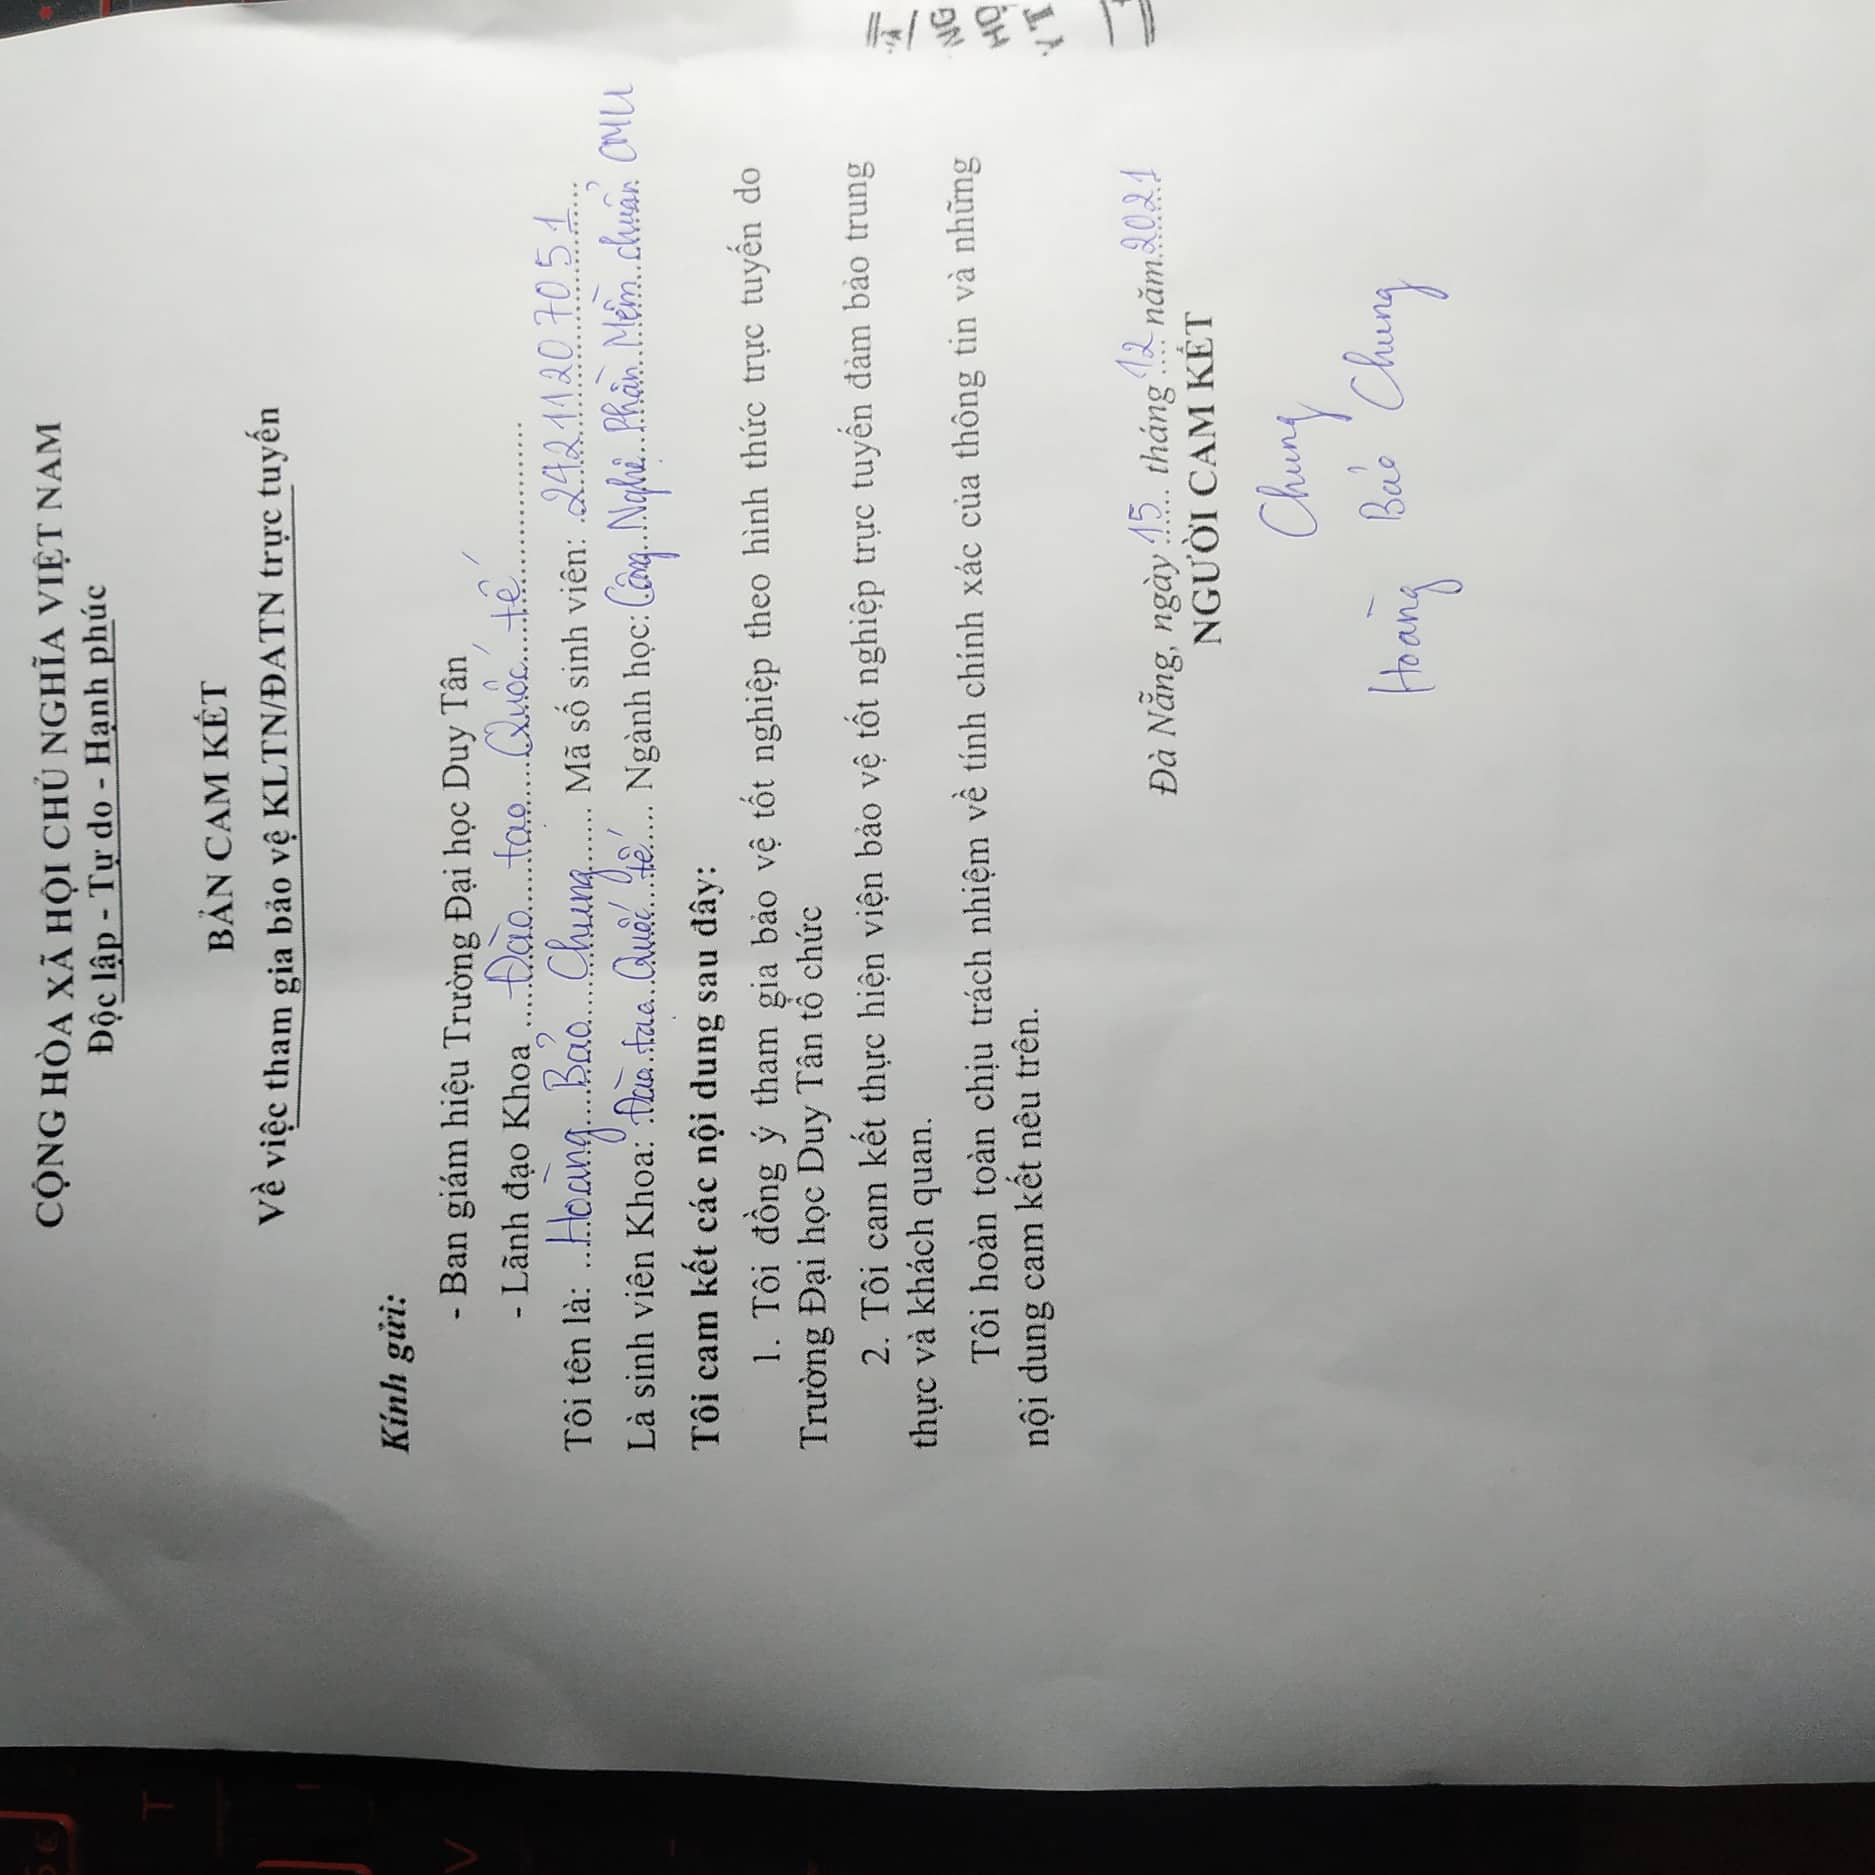 CỘNG HÒA XÃ HỘI CHỦ NGHĨA VIỆT NAM
Độc lập - Tự do - Hạnh phúc
BẢN CAM KẾT
Về việc tham gia bảo vệ KLTN/ĐATN trực tuyến
Kính gửi:
- Ban giám hiệu Trường Đại học Duy Tân
- Lãnh đạo Khoa ....Đào....tạo....Quốc....tế....................
Tôi tên là: ...Hoàng....Bảo....Chung....... Mã số sinh viên: ..24211207051.....
Là sinh viên Khoa: .Đào..tạo..Quốc..tế.... Ngành học: Công..Nghệ..Phần..Mềm..chuẩn CMU
Tôi cam kết các nội dung sau đây:
1. Tôi đồng ý tham gia bảo vệ tốt nghiệp theo hình thức trực tuyến do
Trường Đại học Duy Tân tổ chức
2. Tôi cam kết thực hiện viện bảo vệ tốt nghiệp trực tuyến đảm bảo trung
thực và khách quan.
Tôi hoàn toàn chịu trách nhiệm về tính chính xác của thông tin và những
nội dung cam kết nêu trên.
Đà Nẵng, ngày 15.... tháng 12 năm 2021
NGƯỜI CAM KẾT
Chung
Hoàng Bảo Chung
NG
T
V